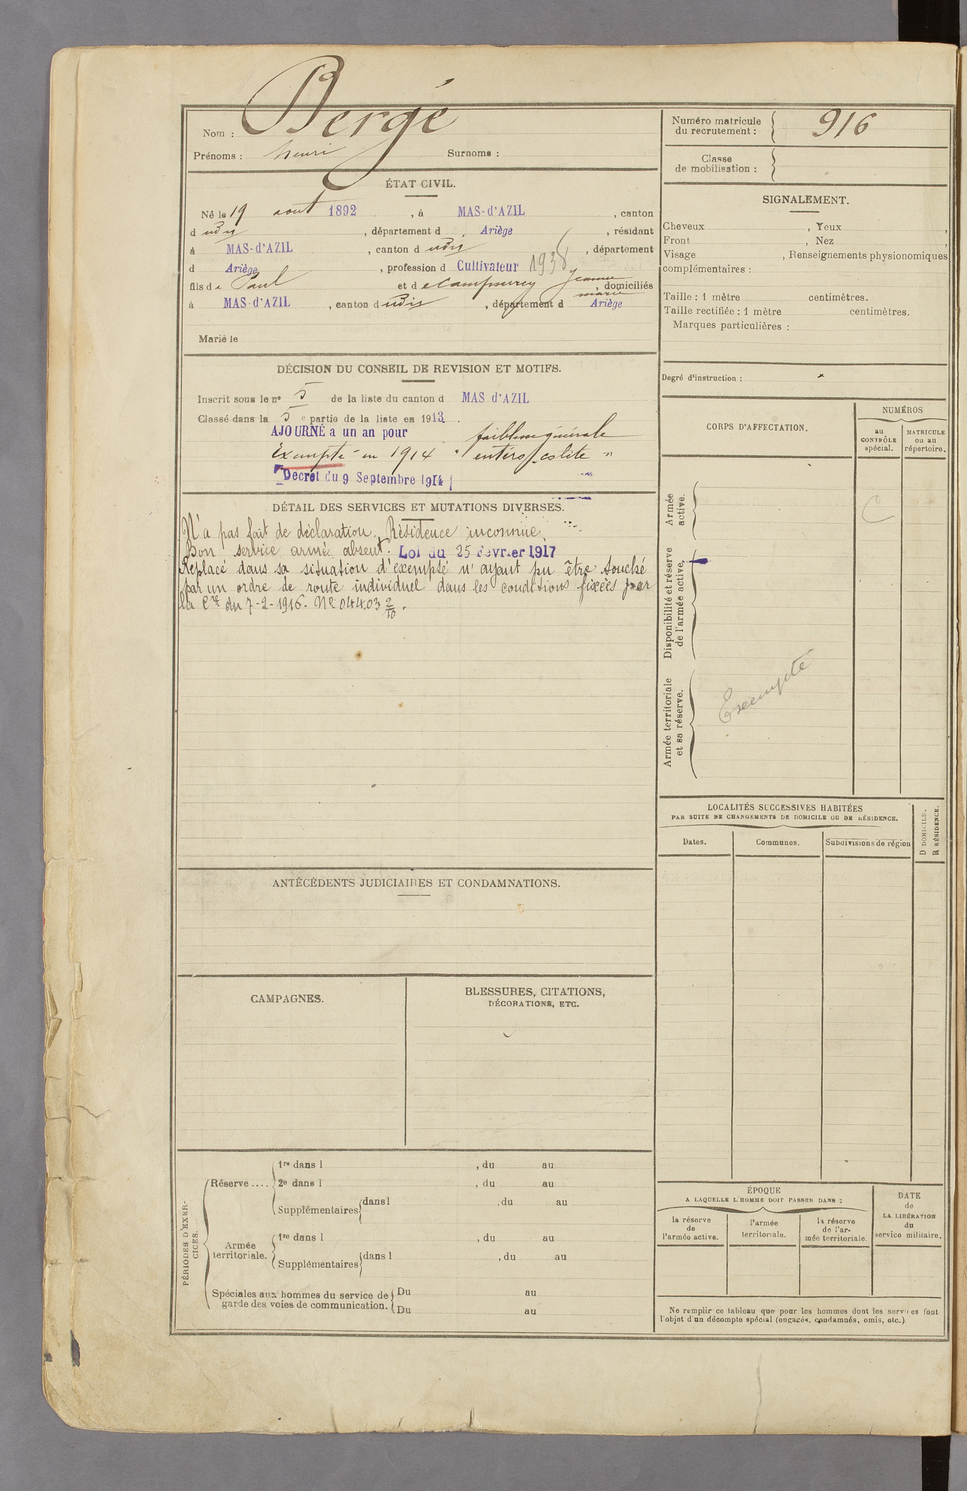 Nom : Bergé
Prénoms : henri Surnoms :
Numéro matricule du recrutement : 916
Classe de mobilisation :
ÉTAT CIVIL.
Né le 19 aout 1892, à MAS-d'AZIL, canton
d udis, département d Ariège, résidant
à MAS-d'AZIL, canton d udis, département
d Ariège, profession d Cultivateur 1938
fils de Paul et de Jeanne marie, domiciliés
à MAS-d'AZIL, canton d udis, département d Ariège
Marié le
SIGNALEMENT.
Cheveux , Yeux ,
Front , Nez ,
Visage , Renseignements physionomiques
complémentaires :
Taille : 1 mètre centimètres.
Taille rectifiée : 1 mètre centimètres.
Marques particulières :
Degré d'instruction :
DÉCISION DU CONSEIL DE REVISION ET MOTIFS.
Inscrit sous le nº 5 de la liste du canton d MAS d'AZIL
Classé dans la 5 e partie de la liste en 1913.
AJOURNÉ a un an pour faiblesse générale
Exempté en 1914 "
Décret du 9 Septembre 1914
DÉTAIL DES SERVICES ET MUTATIONS DIVERSES.
N'a pas fait de déclaration. Résidence inconnue.
Bon service armé, absent. Loi du 25 Février 1917
Replacé dans sa situation d'exempté n'ayant pu être touché
par un ordre de route individuel dans les conditions fixées par
la Cre du 7-2-1916. Nº 04403 2/10.
CORPS D'AFFECTATION.
NUMÉROS
au CONTRÔLE spécial.
MATRICULE ou au répertoire.
Armée active.
C
Disponibilité et réserve de l'armée active.
Armée territoriale et sa réserve.
Exempté
LOCALITÉS SUCCESSIVES HABITÉES
PAR SUITE DE CHANGEMENTS DE DOMICILE OU DE RÉSIDENCE.
Dates.
Communes.
Subdivisions de région
D DOMICILE.
R RÉSIDENCE.
ANTÉCÉDENTS JUDICIAIRES ET CONDAMNATIONS.
CAMPAGNES.
BLESSURES, CITATIONS,
DÉCORATIONS, ETC.
PÉRIODES D'EXERCICES.
Réserve .... 1re dans l , du au
2e dans l , du au
Supplémentaires dans l , du au
Armée territoriale. 1re dans l , du au
Supplémentaires dans l , du au
Spéciales aux hommes du service de Du au
garde des voies de communication. Du au
ÉPOQUE
A LAQUELLE L'HOMME DOIT PASSER DANS :
la réserve de l'armée active.
l'armée territoriale.
la réserve de l'armée territoriale.
DATE de LA LIBÉRATION du service militaire.
Ne remplir ce tableau que pour les hommes dont les services font
l'objet d'un décompte spécial (engagés, condamnés, omis, etc.).